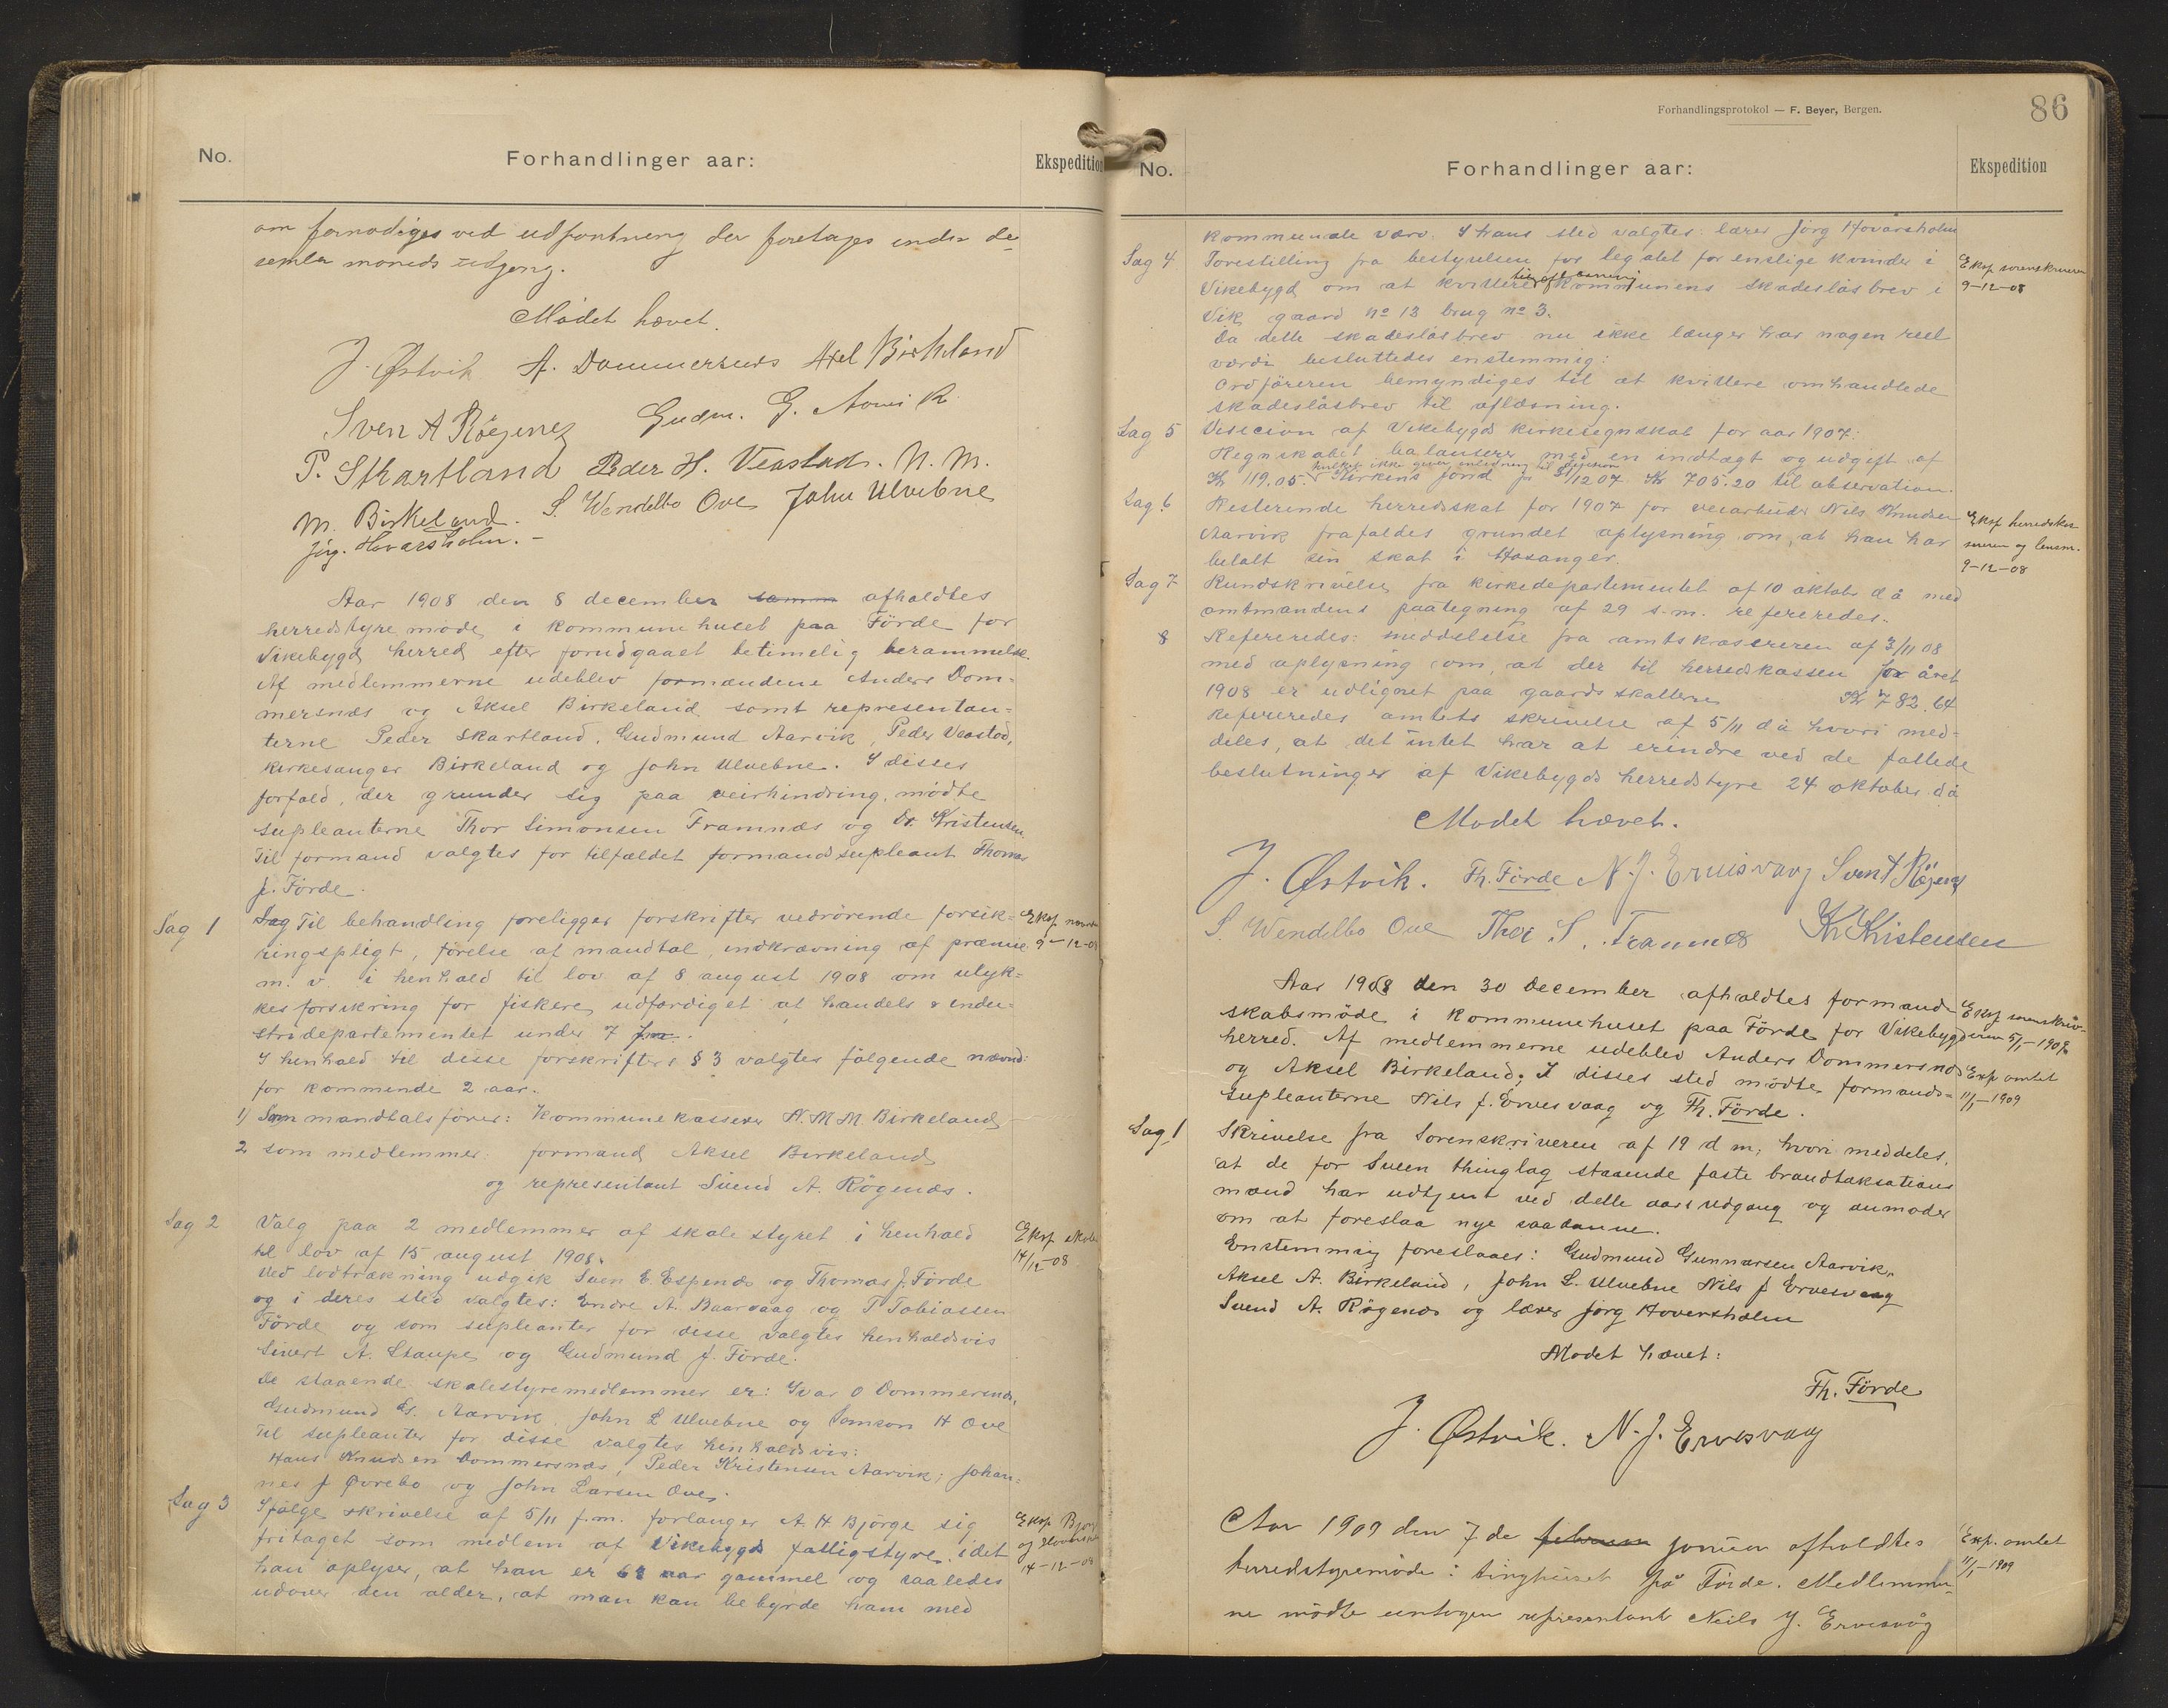 No.
Forhandlinger aar:
Ekspedition
om fornødiges ved udførtning der foretages inden de
sember moneds udgong.
Mødet hævet.
J. Østvik A. Dommersnes Axel Birkeland
Sven A Røgenes Gudm. G. Aarvik
P. Skartland Peder H. Veastad. N. M.
M. Birkeland. S. Wendelbo Ove John Ulvebne
Jørg. Hovarsholm. –
Aar 1908 den 8 december afholdtes
herredstyremøde i kommunehuset paa Förde for
Vikebygd herred efter forudgaaet betimelig berammelse.
Af medlemmerne udeblev formændene Anders Dom-
mersnæs og Aksel Birkeland samt representan-
terne Peder Skartland, Gudmund Aarvik, Peder Veastad,
kirkesanger Birkeland og John Ulvebne. I disses
forfald, der grunder sig paa veirhindring, mødte
supleanterne Thor Simonsen Framnæs og Kr. Kristensen.
Til formand valgtes for tilfældet formandsupleant Thomas
J. Förde.
Sag 1 Sag Til behandling foreligger forskrifter vedrørende forsik-
ringspligt, førelse af mandtal, indkrævning af præmie
m. v. i henhold til lov af 8 august 1908 om ulyk-
kesforsikring for fiskere, udfærdiget af handels & indu-
stridepartementet under 7
I henhold til disse forskrifters § 3 valgtes følgende nævnd:
for kommende 2 aar.
1) Som mandtalsfører: kommunekasserer N. M M. Birkeland
2 som medlemmer: formand Aksel Birkeland
og representant Svend A. Røgenæs.
Eksp
9-12-08
Sag 2 Valg paa 2 medlemmer af skolestyret i henhold
til lov af 15 august 1908.
Ved lodtrækning udgik Sven E. Espenæs og Thomas J. Förde
og i deres sted valgtes: Endre A. Baarvaag og T Tobiassen
Förde og som supleanter for disse valgtes henholdsvis
Sivert A. Staupe og Gudmund J. Förde.
De staaende skolestyremedlemmer er: Ivar O Dommersnæs,
Gudmund G. Aarvik, John L Ulvebne og Samson H Ove
Til supleanter for disse valgtes henholdsvis:
Hans Knudsen Dommersnæs, Peder Kristensen Aarvik, Johan-
nes J Øvrebø og John Larsen Ove.
Eksp
14/12-08
Sag 3 Ifølge skrivelse af 5/11 f.m. forlanger A. H Bjørge sig
fritaget som medlem af Vikebygds fattigstyre, idet
han oplyser, at han er 68 aar gammel og saaledes
udover den alder, at man kan bebyrde ham med
Eksp Bjørge
og
14-12-08
Forhandlingsprotokol — F. Beyer, Bergen.
86
No.
Forhandlinger aar:
Ekspedition
kommunale værv. I hans sted valgtes: lærer Jørg Hovarsholm
Sag 4 Forestilling fra bestyrelsen for legatet for enslige kvinder i
Vikebygd om at kvittere til aflæsning kommunens skadesløsbrev i
Vik gaard no 13 brug no 3.
Da dette skadesløsbrev nu ikke længer har nogen reel
værdi besluttedes enstemmig:
Ordføreren bemyndiges til at kvittere omhandlede
skadesløsbrev til aflæsning.
Eksp sorenskriveren
9-12-08
Sag 5 Desecion af Vikebygds kirkeregnskab for aar 1907:
Regnskabet balanserer med en indtægt og udgift af
Kr 119.05. hvilket ikke giver anledning til desision Kirkens fond pr 31/12 07 Kr 705.20 til observation.
Sag 6 Resterende herredsskat for 1907 for veiarbeider Nils Knudsen
Aarvik frafaldes grundet oplysning om, at han har
betalt sin skat i Hosanger.
Eksp herredskas-
sereren og lensm.
9-12-08
Sag 7 Rundskrivelse fra kirkedepartementet af 10 oktober d å med
amtmandens paategning af 29 s.m. refereredes.
8 Refereredes: meddelelse fra amtskassereren af 3/11 08
med oplysning om, at der til herredskassen for året
1908 er udlignet paa gaardsskatten Kr 782.64
Refereredes amtets skrivelse af 5/11 då hvori med-
deles, at det intet har at erindre ved de fattede
beslutninger af Vikebygds herredstyre 24 oktober då
Modet hævet.
J. Østvik. Th. Förde N. J. Ervesvaag Sven A Røgenes
S Wendelbo Ove Thor S. Framnes Kr Kristensen
Aar 1908 den 30 December afholdtes formand-
skabsmöde i kommunehuset paa Förde for Vikebygd
herred. Af medlemmerne udeblev Anders Dommersnæs
og Aksel Birkeland; I disses sted mødte formands-
supleanterne Nils J. Ervesvaag og Th. Förde.
Eksp sorenskriv-
eren 5/1-1909
Exp amtet
11/1-1909
Sag 1 Skrivelse fra Sorenskriveren af 19 d m, hvori meddeles,
at de for Sveen thinglag staaende faste brandtaksations
mænd har udtjent ved dette aars udgang og anmoder
om at foreslaa nye saadanne.
Enstemmig foreslaaes: Gudmund Gunnarsen Aarvik,
Aksel A. Birkeland, John L. Ulvebne Nils J Ervesvaag
Svend A. Røgenæs og lærer Jørg Hoversholm
Modet hævet:
Th. Förde
J. Østvik. N. J. Ervesvaag
Aar 1909 den 7 de februar januar afholdtes
herredstyremøde i tinghuset på Förde. Medlemmer-
ne mödte untagen representant Neils J. Ervesvåg
Exp. amtet
11/1-1909